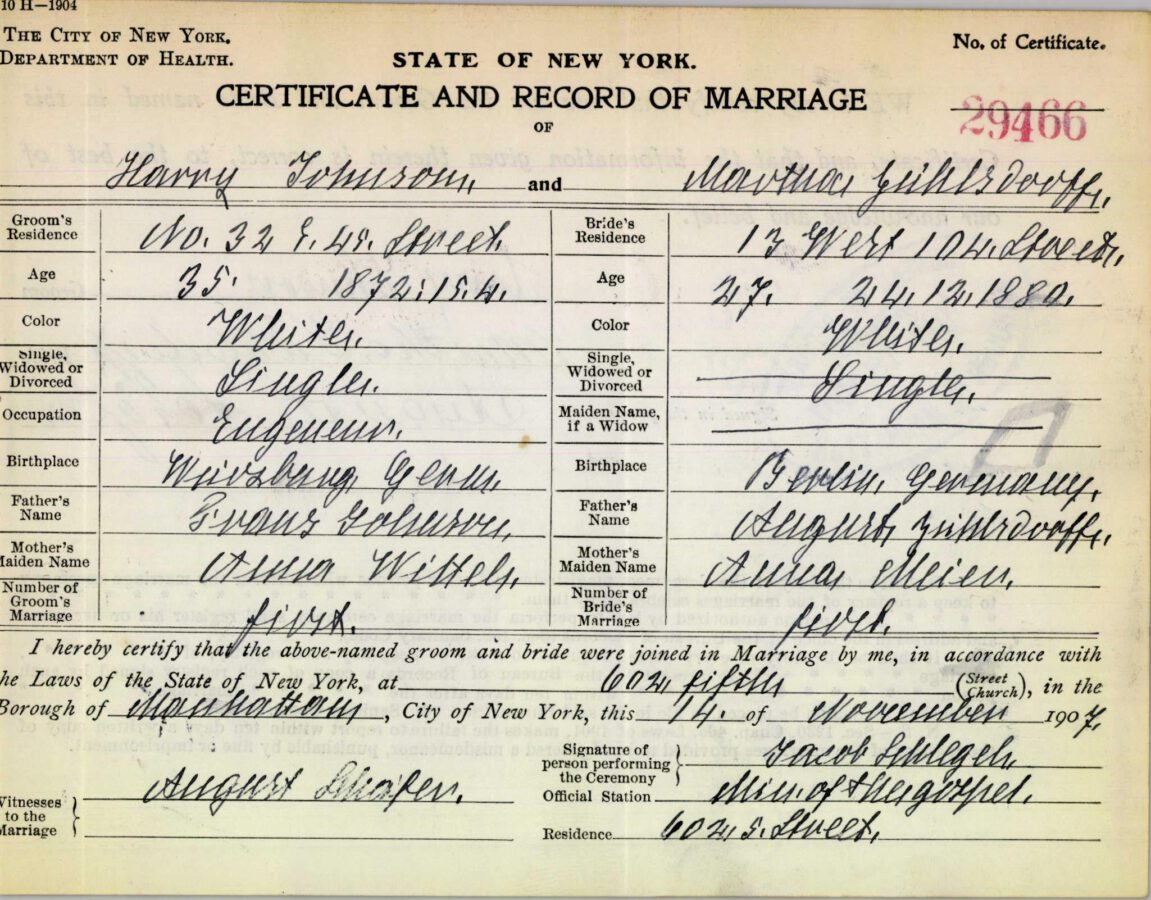 10 H—1904
THE CITY OF NEW YORK.
DEPARTMENT OF HEALTH.
No. of Certificate.
STATE OF NEW YORK.
CERTIFICATE AND RECORD OF MARRIAGE
29466
OF
Harry Johnson, and Martha Zühlsdorff,
Groom's Residence No. 32 E. 45. Street.
Bride's Residence 13 West 104. Street,
Age 35. 1872. 15.4.
Age 27. 24.12.1880.
Color White.
Color White.
Single, Widowed or Divorced Single.
Single, Widowed or Divorced Single.
Occupation Engeneur.
Maiden Name, if a Widow
Birthplace Würzburg, Germ.
Birthplace Berlin, Germany.
Father's Name Franz Johnson,
Father's Name August, Zühlsdorff,
Mother's Maiden Name Anna Wittel,
Mother's Maiden Name Anna, Meier.
Number of Groom's Marriage first.
Number of Bride's Marriage first.
I hereby certify that the above-named groom and bride were joined in Marriage by me, in accordance with
he Laws of the State of New York, at 602, fifth (Street Church), in the
Borough of Manhattan, City of New York, this 14. of November 1907.
Signature of person performing the Ceremony Jacob Schlegel,
August Schäfer.
Official Station Min. of the gospel.
Witnesses to the Marriage
Residence 602, 5. Street,